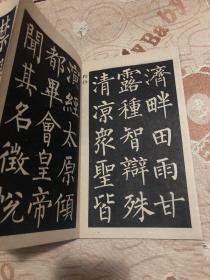 濟畔田雨甘
露種智辯殊
清涼衆聖皆
演經太原傾
都畢會皇帝
聞其名徵悅
禁